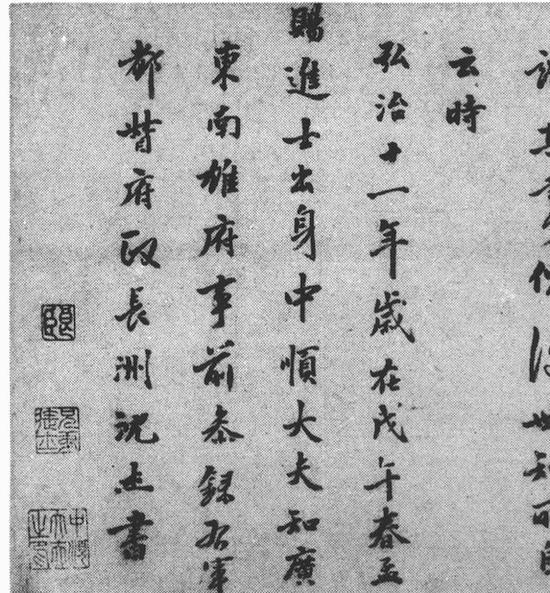 世知
云時
弘治十一年歲在戊午春孟
賜進士出身中順大夫知廣
東南雄府事前叅錄右軍
都督府政長洲書